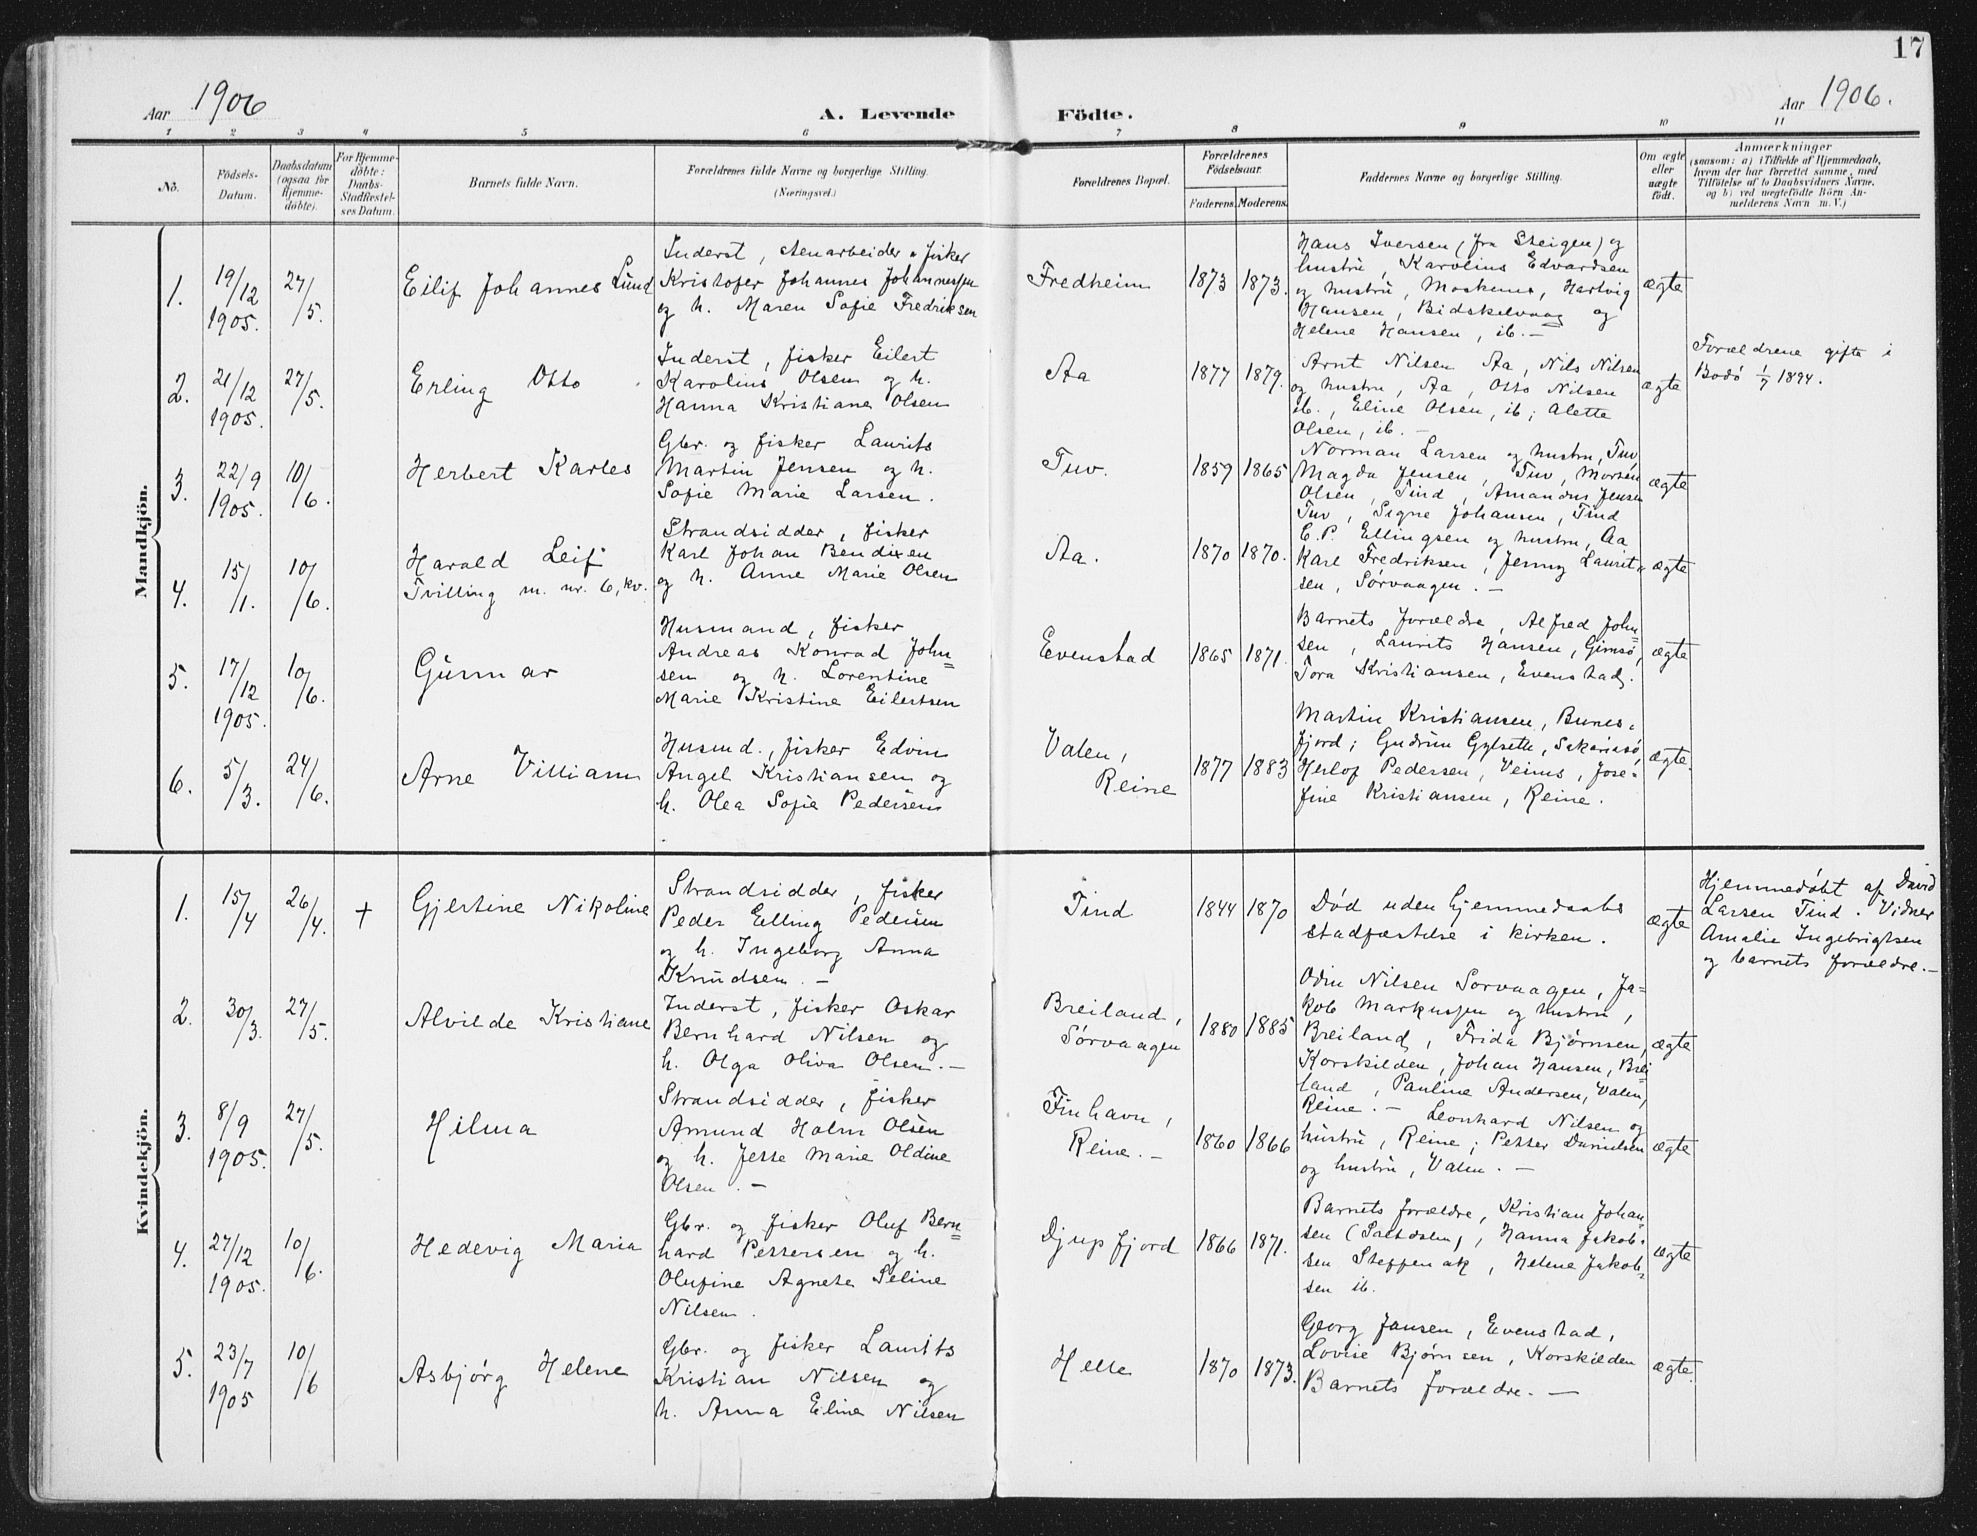 17
Aar 1906
A. Levende Födte.
Aar 1906.
1 2 3 4 5 6 7 8 9 10 11
No.
Födsels-
Datum.
Daabsdatum
(ogsaa for
Hjemme-
döbte).
For Hjemme-
döbte:
Daabs-
Stadfæstel-
ses Datum.
Barnets fulde Navn.
Forældrenes fulde Navne og borgerlige Stilling.
(Næringsvei.)
Forældrenes Bopæl.
Forældrenes
Födselsaar.
Faderens. Moderens.
Faddernes Navne og borgerlige Stilling.
Om ægte
eller
uægte
födt.
Anmærkninger
(saasom: a) i Tilfælde af Hjemmedaab,
hvem der har forrettet samme, med
Tilföielse af to Daabsvidners Navne,
og b) ved uægtefödte Börn An-
melderens Navn m. V.)
Mandkjön.
1.
19/12
1905.
27/5.
Eilif Johannes Lund
Inderst, stenarbeider & fisker
Kristofer Johannes Johannessen
og h. Maren Sofie Fredriksen
Fredheim
1873 1873.
Hans Iversen (fra Steigen) og
hustru, Karolius Edvardsen
og hustru, Moskenes, Hartvig
Hansen, Bidskelvaag og
Helene Hansen, ib. —
ægte
2.
21/12
1905.
27/5.
Erling Otto
Inderst, fisker Eilert
Karolius Olsen og h.
Hanna Kristiane Olsen
Aa
1877 1879.
Arnt Nilsen Aa, Nils Nilsen
og hustru, Aa, Otto Nilsen
ib., Eline Olsen, ib; Alette
Olsen, ib. —
ægte
Forældrene gifte i
Bodö 1/7 1894.
3.
22/9
1905.
10/6.
Herbert Karles
Gbr. og fisker Laurits
Martin Jensen og h.
Sofie Marie Larsen.
Tuv.
1859 1865
Norman Larsen og hustru, Tuv
Magda Jensen, Tuv, Morten
Olsen, Tind, Amandus Jensen
Tuv, Signe Johansen, Tind
ægte
4.
15/1.
10/6.
Harald Leif
Tvilling m. nr. 6, kv.
Strandsidder, fisker
Karl Johan Bendixen
og h. Anne Marie Olsen
Aa.
1870 1870.
E. P. Ellingsen og hustru, Aa
Karl Fredriksen, Jenny Laurit-
sen, Sørvaagen. —
ægte
5.
17/12
1905.
10/6.
Gunnar
Husmand, fisker
Andreas Konrad John-
sen og h. Lorentine
Marie Kristine Eilertsen
Evenstad
1865 1871.
Barnets forældre, Alfred John-
sen, Laurits Hansen, Gimsø,
Tora Kristiansen, Evenstad.
ægte
6.
5/3.
24/6.
Arne Villiam
Husmd., fisker Edvin
Angel Kristiansen og
h. Olea Sofie Pedersen
Valen,
Reine
1877 1883
Martin Kristiansen, Bunes-
fjord; Gudrun Gylseth, Sakariasø,
Herlof Pedersen, Veines, Jose-
fine Kristiansen, Reine.
ægte.
Kvindekjön.
1.
15/4
26/4.
+
Gjertine Nikoline
Strandsidder, fisker
Peder Elling Pedersen
og h. Ingeborg Anna
Knudsen. —
Tind
1844 1870
Død uden hjemmedaabs
stadfæstelse i kirken.
ægte
Hjemmedøbt af David
Larsen Tind. Vidner
Amalie Ingebrigtsen
og barnets forældre. —
2.
30/3.
27/5.
Alvilde Kristiane
Inderst, fisker Oskar
Bernhard Nilsen og
h. Olga Oliva Olsen. —
Breiland,
Sørvaagen
1880 1885
Odin Nilsen Sørvaagen, Ja-
kob Markussen og hustru,
Breiland, Frida Bjørnsen,
Korskilden, Johan Hansen, Brei
land, Pauline Andersen, Valen,
Reine. —
ægte
3.
8/9
1905.
27/5.
Hilma
Strandsidder, fisker
Amund Holm Olsen
og h. Jette Marie Oldine
Olsen. —
Finhavn,
Reine. —
1860 1866
Leonhard Nilsen og
hustru, Reine; Petter Danielsen
og hustru, Valen. —
ægte
4.
27/12
1905.
10/6.
Hedevig Maria
Gbr. og fisker Oluf Bern-
hard Pettersen og h.
Olufine Agnete Seline
Nilsen.
Djupfjord
1866 1871.
Barnets forældre, Kristian Johan-
sen (Saltdalen), Hanna Jakob-
sen Steffenak, Helene Jakob-
sen ib.
ægte
5.
23/7
1905
10/6
Asbjørg Helene
Gbr. og fisker Laurits
Kristian Nilsen og
h. Anna Eline Nilsen
Helle
1870 1873.
Georg Jansen, Evenstad,
Lovise Bjørnsen, Korskilden
Barnets forældre. —
ægte.